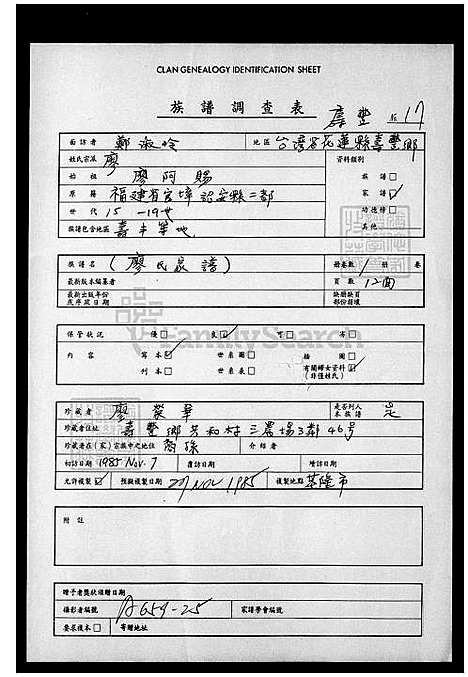 CLAN GENEALOGY IDENTIFICATION SHEET
族譜調查表 壽豐 17
面訪者 鄭淑玲 地區 台灣省花蓮縣壽豐鄉
姓氏宗派 廖 資料類別
始祖 廖阿賜 族譜□
原籍 福建省官埤詔安縣二都 家譜☑
世代 15－19世
族譜包含地區 壽丰等地 其他
族譜名 (廖氏家譜) 冊卷數 1 冊 卷
最新版本編纂者 頁數 12面
最新出版年份或序跋日期 缺冊缺頁部份損壞
保管狀況 優□ 良☑ 可□ 劣□
內容 寫本☑ 世系圖□ 插圖□
刊本□ 世系表□ 有關婦女資料☑
(非僅姓氏)
珍藏者 廖榮華 是否列入本族譜 是
珍藏者住址 壽豐鄉共和村三鄰46号
珍藏者在(家)宗族中之地位 裔孫 介紹者
初訪日期 1985 Nov. 7 覆訪日期 續訪日期
允許複製☑ 預擬複製日期 29 NOV 1985 複製地點 基隆市
附註
贈予者獎狀頒贈日期
攝影者編號 A659-25 家譜學會編號
要求複本□ 寄贈地址
FamilySearch